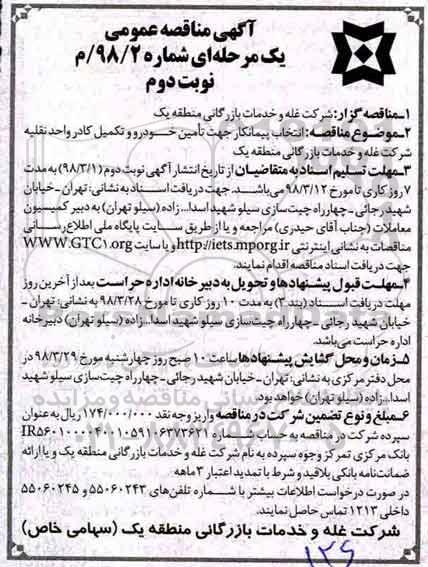 آگهی مناقصه عمومی
یک مرحله‌ای شماره ۹۸/۲/م
نوبت دوم
۱ـ مناقصه گزار: شرکت غله و خدمات بازرگانی منطقه یک
۲ـ موضوع مناقصه: انتخاب پیمانکار جهت تأمین خودرو و تکمیل کادر واحد نقلیه
شرکت غله و خدمات بازرگانی منطقه یک
۳ـ مهلت تسلیم اسناد به متقاضیان از تاریخ انتشار آگهی نوبت دوم (۹۸/۳/۱) به مدت
۷ روز کاری تا مورخ ۹۸/۳/۱۲ می‌باشد. جهت دریافت اسناد به نشانی: تهران ـ خیابان
شهید رجائی ـ چهارراه چیت‌سازی سیلو شهید اسدا... زاده (سیلو تهران) به دبیر کمیسیون
معاملات (جناب آقای حیدری) مراجعه و یا از طریق سایت پایگاه ملی اطلاع رسانی
مناقصات به نشانی اینترنتی http://iets.mporg.ir و یا سایت WWW.GTC1.org
جهت دریافت اسناد مناقصه اقدام نمایند.
۴ـ مهلت قبول پیشنهادها و تحویل به دبیرخانه اداره حراست بعد از آخرین روز
مهلت دریافت اسناد (بند ۳) به مدت ۱۰ روز کاری تا مورخ ۹۸/۳/۲۸ به نشانی: تهران ـ
خیابان شهید رجائی ـ چهارراه چیت‌سازی سیلو شهید اسدا... زاده (سیلو تهران) دبیرخانه
اداره حراست می‌باشد.
۵ـ زمان و محل گشایش پیشنهادها ساعت ۱۰ صبح روز چهارشنبه مورخ ۹۸/۳/۲۹ در
محل دفتر مرکزی به نشانی: تهران ـ خیابان شهید رجائی ـ چهارراه چیت‌سازی سیلو شهید
اسدا... زاده (سیلو تهران) خواهد بود.
۶ـ مبلغ و نوع تضمین شرکت در مناقصه واریز وجه نقد ۱۷۴/۰۰۰/۰۰۰ ریال به عنوان
سپرده شرکت در مناقصه به حساب شماره
بانک مرکزی تمرکز وجوه سپرده به نام شرکت غله و خدمات بازرگانی منطقه یک و یا ارائه
ضمانت‌نامه بانکی بلاقید و شرط با تمدید اعتبار ۳ ماهه
در صورت درخواست اطلاعات بیشتر با شماره تلفن‌های ۵۵۰۶۰۲۴۳ و ۵۵۰۶۰۲۴۵
داخلی ۱۲۱۳ تماس حاصل نمایند.
شرکت غله و خدمات بازرگانی منطقه یک (سهامی خاص)
۱۲۶